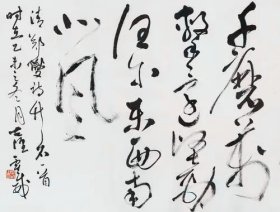 千磨万
击还坚劲
任尔东西南
北风
清郑燮诗竹石一首
时在乙未之冬月